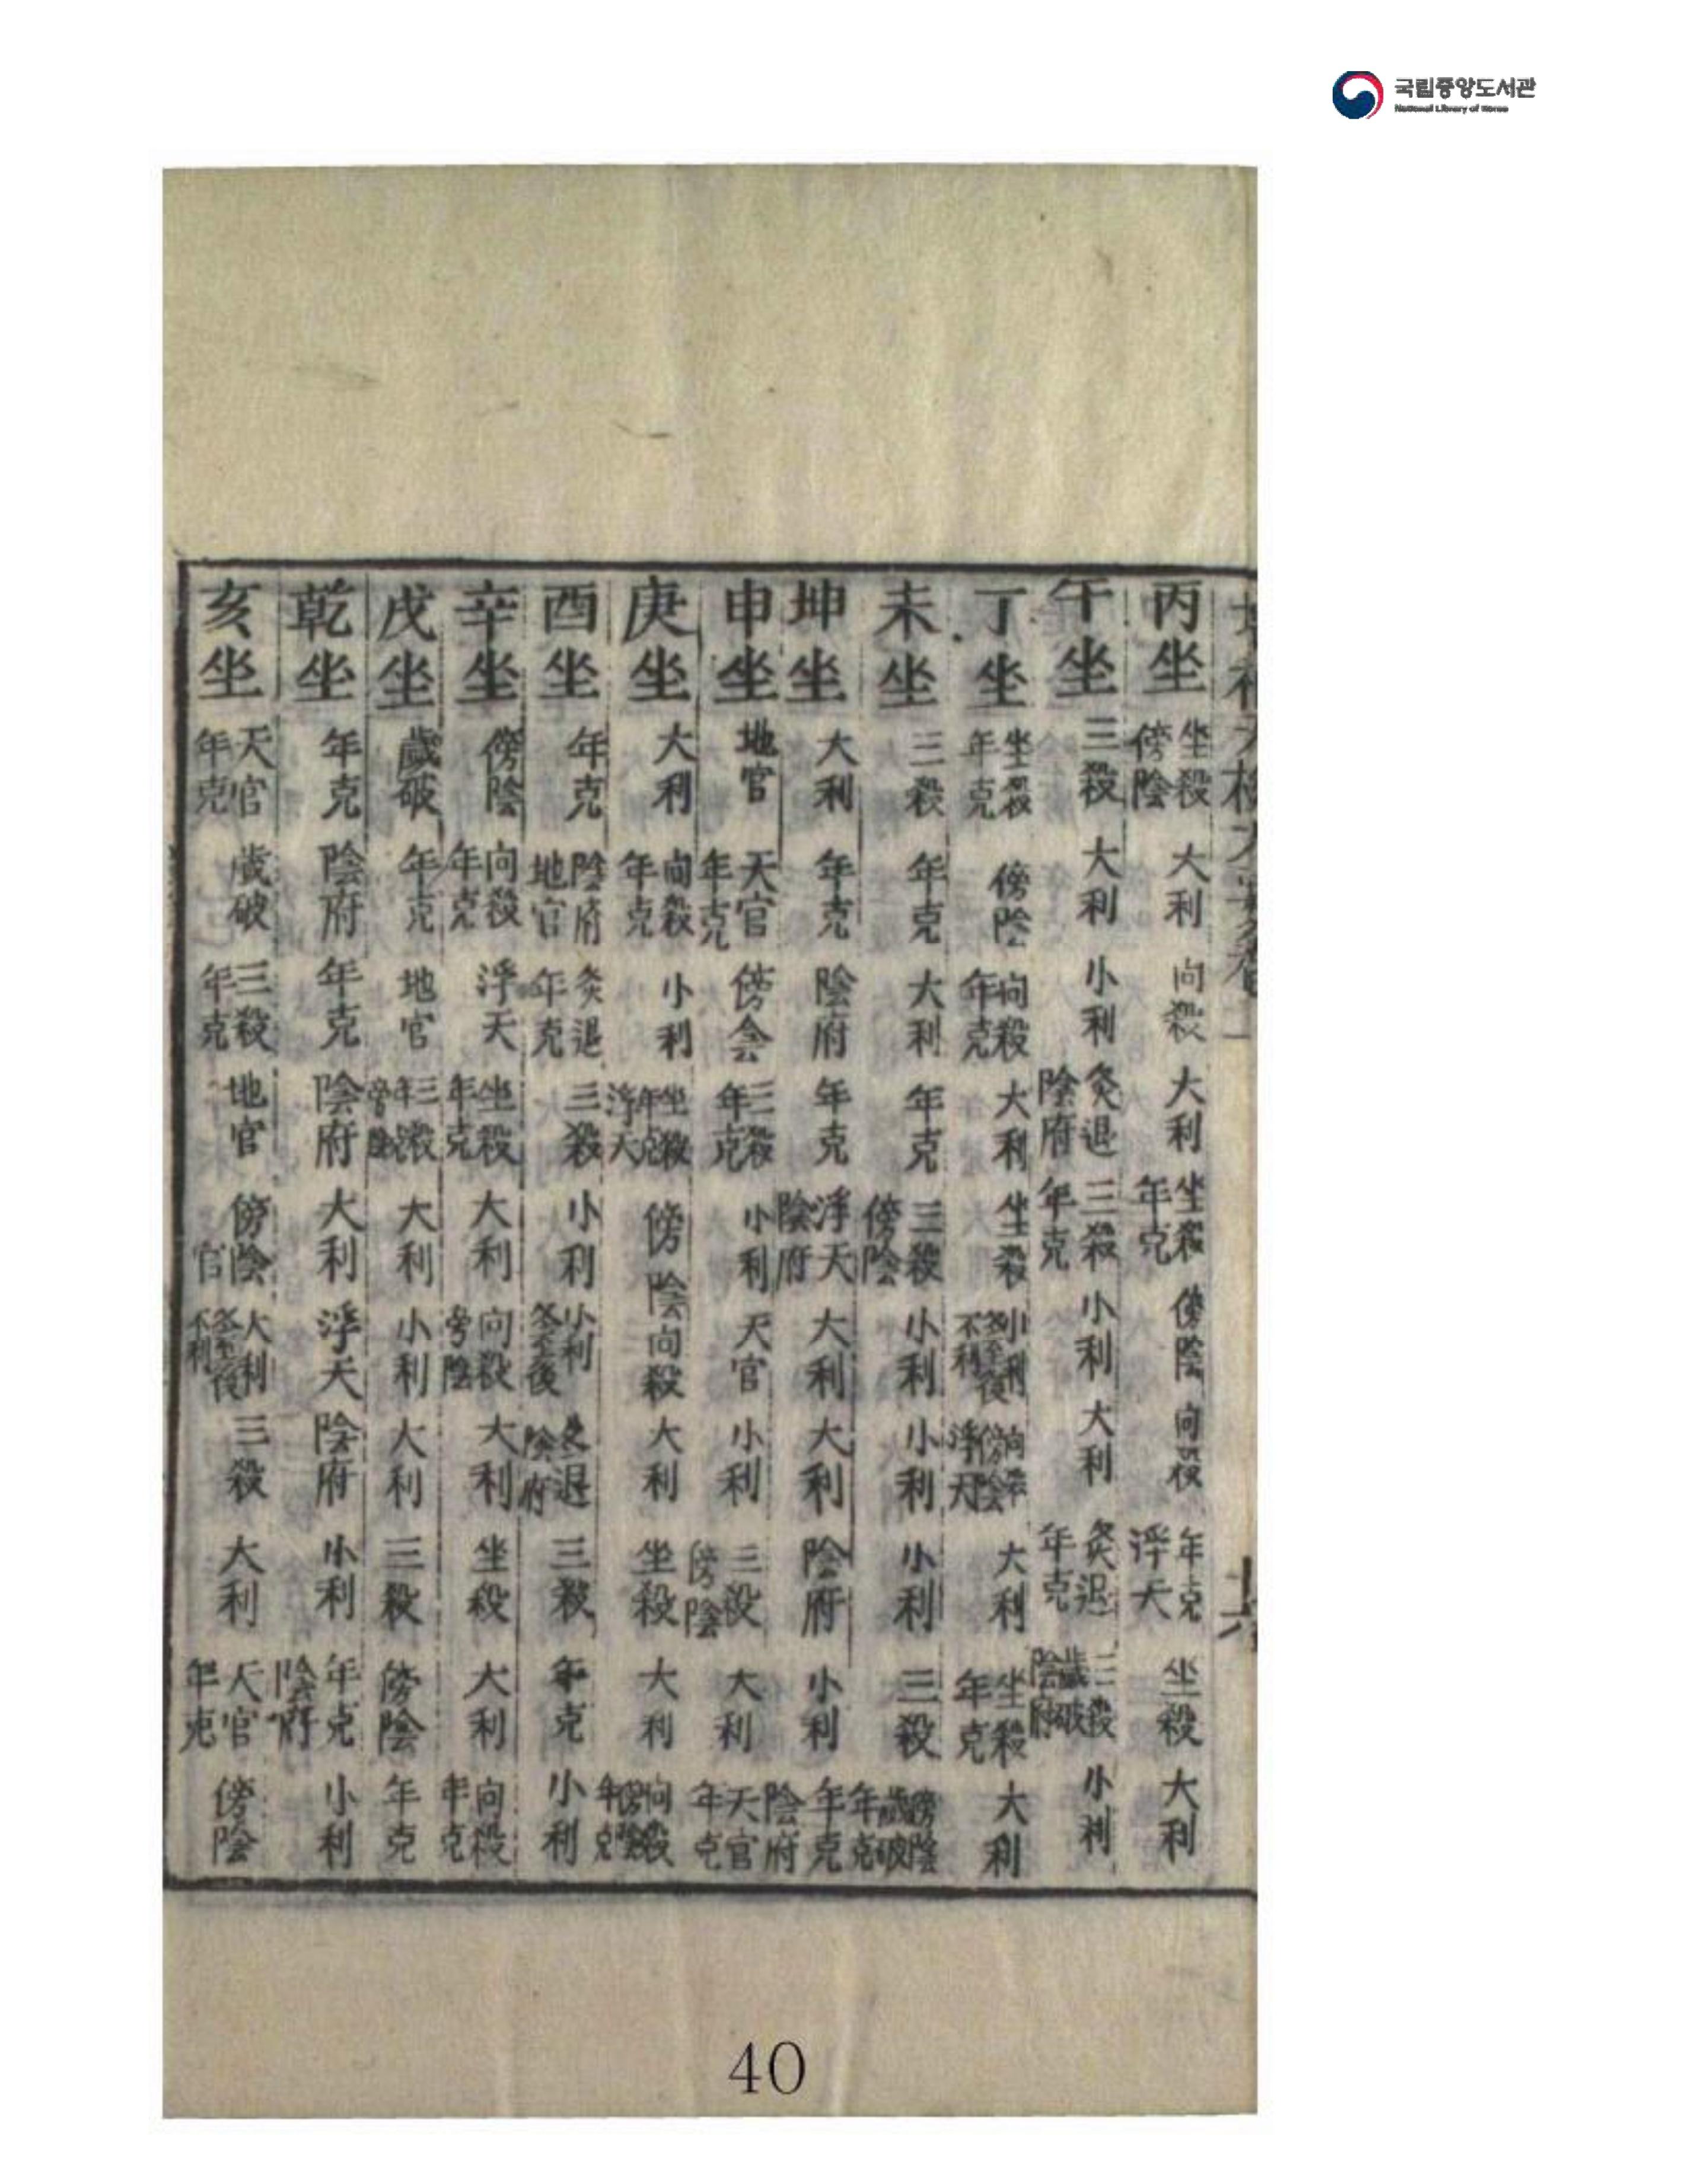 국립중앙도서관
National Library of Korea
丙坐 坐殺傍陰 大利 向殺 大利 坐殺年克 傍陰 向殺 年克浮天 坐殺 大利
午坐 三殺 大利 小利 灸退陰府 三殺年克 小利 大利 灸退年克 三殺歲破陰府 小利
丁坐 坐殺年克 傍陰 向殺年克 大利 坐殺 小利冬至後不利 向殺傍陰浮天 大利 坐殺年克 大利
未坐 三殺 年克 大利 年克 三殺傍陰 小利 小利 小利 三殺 傍陰歲破年克
坤坐 大利 年克 陰府 年克 浮天陰府 大利 大利 陰府 小利 年克陰府
申坐 地官 天官年克 傍会 三殺年克 小利 天官 小利 三殺傍陰 大利 天官年克
庚坐 大利 向殺年克 小利 坐殺年克浮天 傍陰 向殺 大利 坐殺 大利 向殺傍陰年克
酉坐 年克 陰府地官 灸退年克 三殺 小利 小利冬至後 灸退陰府 三殺 年克 小利
辛坐 傍陰 向殺年克 浮天 坐殺年克 大利 向殺旁陰 大利 坐殺 大利 向殺年克
戌坐 歲破 年克 地官 三殺年克旁陰 大利 小利 大利 三殺 傍陰 年克
乾坐 年克 陰府 年克 陰府 大利 浮天 陰府 小利 年克陰府 小利
亥坐 天官年克 歲破 三殺年克 地官 傍陰官 大利冬至後不利 三殺 大利 天官年克 傍陰
40